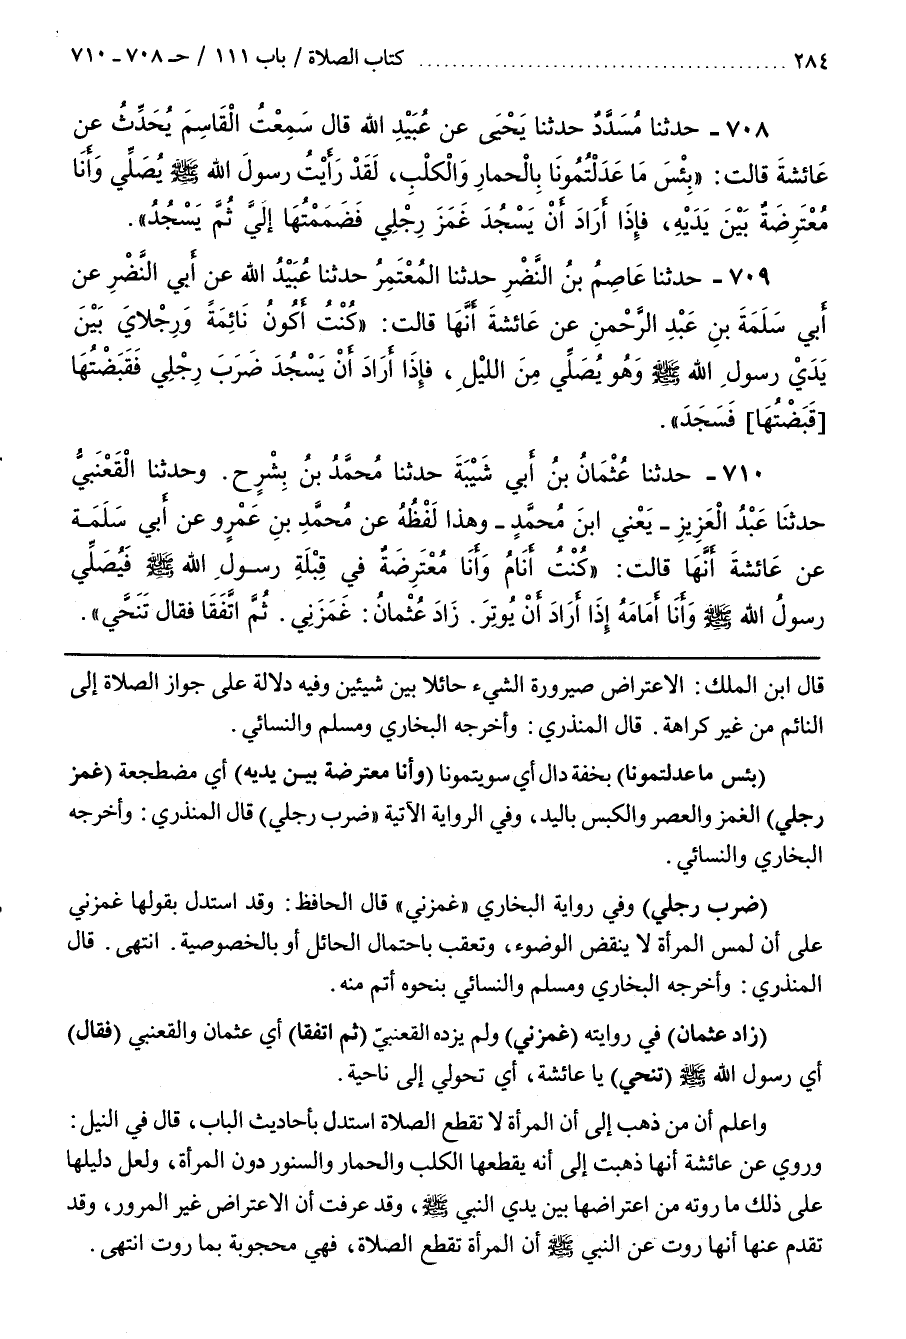 ٢٨٤ ........................................ كتاب الصلاة / باب ١١١ / حـ ٧٠٨ ـ ٧١٠
٧٠٨ ـ حدثنا مُسَدَّدٌ حدثنا يَحْيَى عن عُبَيْدِ الله قال سَمِعْتُ الْقَاسِمَ يُحَدِّثُ عن
عَائشةَ قالت: «بِئْسَ مَا عَدَلْتُمُونَا بِالْحمارِ وَالْكَلْبِ، لَقَدْ رَأَيْتُ رسولَ الله ﷺ يُصَلِّي وَأَنَا
مُعْتَرِضَةٌ بَيْنَ يَدَيْهِ، فإِذَا أَرَادَ أَنْ يَسْجُدَ غَمَزَ رِجْلِي فَضَمَمْتُهَا إلَيَّ ثُمَّ يَسْجُدُ».
٧٠٩ ـ حدثنا عَاصِمُ بنُ النَّضْرِ حدثنا المُعْتَمِرُ حدثنا عُبَيْدُ الله عن أَبي النَّضْرِ عن
أَبي سَلَمَةَ بنِ عَبْدِ الرَّحْمنِ عن عَائشةَ أَنَّهَا قالت: «كُنْتُ أَكُونُ نَائِمَةً وَرِجْلايَ بَيْنَ
يَدَيْ رسولِ الله ﷺ وَهُو يُصَلِّي مِنَ اللَّيْلِ، فإِذَا أَرَادَ أَنْ يَسْجُدَ ضَرَبَ رِجْلِي فَقَبَضْتُهَا
[قَبَضْتُهَا] فَسَجَدَ».
٧١٠ ـ حدثنا عُثْمَانُ بنُ أَبي شَيْبَةَ حدثنا مُحمَّدُ بنُ بِشْرٍ ح. وحدثنا الْقَعْنَبيُّ
حدثنَا عَبْدُ الْعَزِيزِ ـ يَعْني ابنَ مُحمَّدٍ ـ وهذا لَفْظُهُ عن مُحمَّدِ بنِ عَمْرٍو عن أَبي سَلَمَةَ
عن عَائشةَ أَنَّهَا قالت: «كُنْتُ أَنَامُ وَأَنَا مُعْتَرِضَةٌ في قِبْلَةِ رسولِ الله ﷺ فَيُصَلِّي
رسولُ الله ﷺ وَأَنَا أَمَامَهُ إذَا أَرَادَ أَنْ يُوتِرَ. زَادَ عُثْمانُ: غَمَزَنِي. ثُمَّ اتَّفَقَا فقال تَنَحَّي».
قال ابن الملك: الاعتراض صيرورة الشيء حائلا بين شيئين وفيه دلالة على جواز الصلاة إلى
النائم من غير كراهة. قال المنذري: وأخرجه البخاري ومسلم والنسائي.
(بئس ما عدلتمونا) بخفة دال أي سويتمونا (وأنا معترضة بين يديه) أي مضطجعة (غمز
رجلي) الغمز والعصر والكبس باليد، وفي الرواية الآتية «ضرب رجلي) قال المنذري: وأخرجه
البخاري والنسائي.
(ضرب رجلي) وفي رواية البخاري «غمزني» قال الحافظ: وقد استدل بقولها غمزني
على أن لمس المرأة لا ينقض الوضوء، وتعقب باحتمال الحائل أو بالخصوصية. انتهى. قال
المنذري: وأخرجه البخاري ومسلم والنسائي بنحوه أتم منه.
(زاد عثمان) في روايته (غمزني) ولم يزده القعنبيّ (ثم اتفقا) أي عثمان والقعنبي (فقال)
أي رسول الله ﷺ (تنحي) يا عائشة، أي تحولي إلى ناحية.
واعلم أن من ذهب إلى أن المرأة لا تقطع الصلاة استدل بأحاديث الباب، قال في النيل:
وروي عن عائشة أنها ذهبت إلى أنه يقطعها الكلب والحمار والسنور دون المرأة، ولعل دليلها
على ذلك ما روته من اعتراضها بين يدي النبي ﷺ، وقد عرفت أن الاعتراض غير المرور، وقد
تقدم عنها أنها روت عن النبي ﷺ أن المرأة تقطع الصلاة، فهي محجوبة بما روت انتهى.